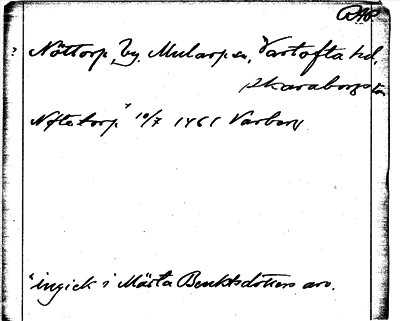 RAP
? Nöttorp, by, Mularps sn, Vartofta hd,
Skaraborgs län
Noftetorp" 10/7 1461 Varberg.
"ingick i Märta Benktsdotters arv.